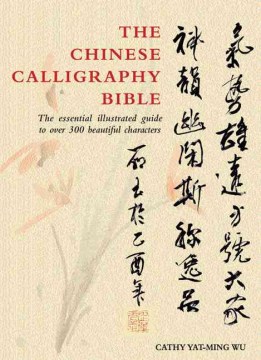 THE
CHINESE
CALLIGRAPHY
BIBLE
The essential illustrated guide
to over 300 beautiful characters
氣勢雄遠方號大家
神韻幽閑斯稱逸品
於乙酉年
CATHY YAT-MING WU